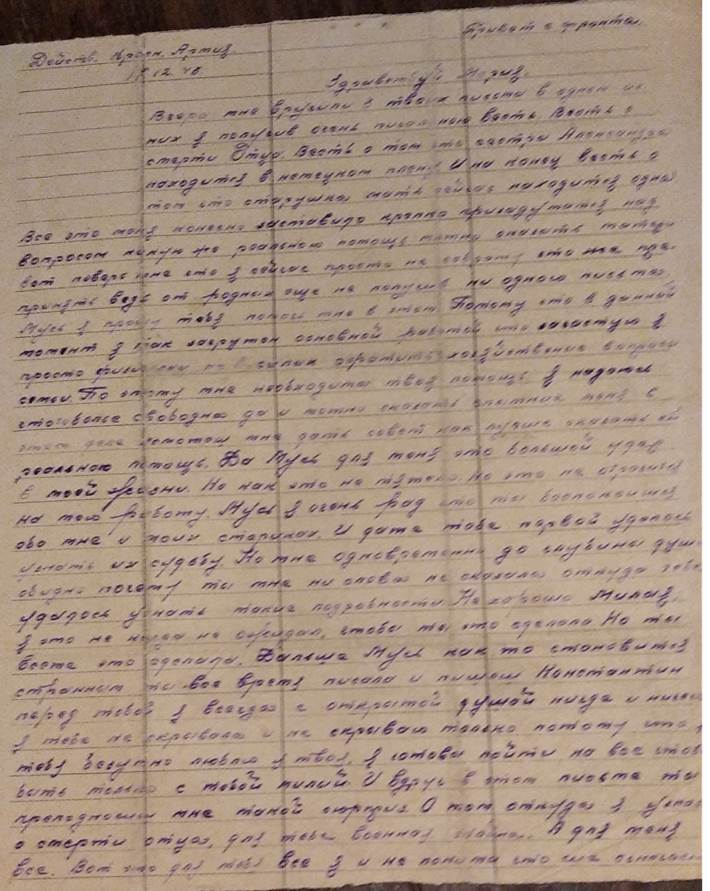 Привет с фронта.
Действ. Красн. Армия
12 45
Здравствуй Мария.
Вчера мне вручили 3 твоих письма в одном из
них я получив очень весть. Весть о
смерти Отца. Весть о том что сестра Александра
находится в немецком плену И на конец весть о
том что старушка мать сейчас находится одна
Все это меня конечно заставило крепко призадуматся над
вопросом какую же реальною помощь можно оказать матери
вот поверь мне что я сейчас просто не что же пре-
принять ведь от родных еще не получив ни одного письма,
Мусь я прошу тебя помоч мне в этом. Потому что в данный
момент я так загружон основной работой что зачастую я
просто не в силах хозяйственные вопросы
семьи. По этому мне необходима твоя помощь я надеюсь
свободна да и можно сказать опытние меня в
этом деле мне дать совет как лучше оказать ей
реальною помощь. Да Мусь для меня это большой удар
в моей жизни. Но как это не тяжело но это не отразится
на мою работу. Мусь я очень рад что ты
обо мне и моих стариках. И даже тебе первой удалось
узнать их судьбу. Но мне одновременно до глубины души
обидно почему ты мне ни слова не сказала откуда тебе
удалось узнать такие подробности. Не хорошо Милая,
я это не когда не ожидал, чтобы ты это сделала Но ты
это сделала. Дальше Мусь как то становится
странным ты все время писала и пишеш Константин
перед тобой я всегда с открытой душой нигде и ничего
я тебе не скрывала и не скрываю только потому что
тебя безумно люблю я твоя, я готова пойти на все чтоб
быть только с тобой милый И вдруг в этом письме ты
преподносиш мне такой сюрприз О том откуда я узнала
о смерти отца, для тебя военная тайна. А для меня
все. Вот это для тебя все я и не пойму что